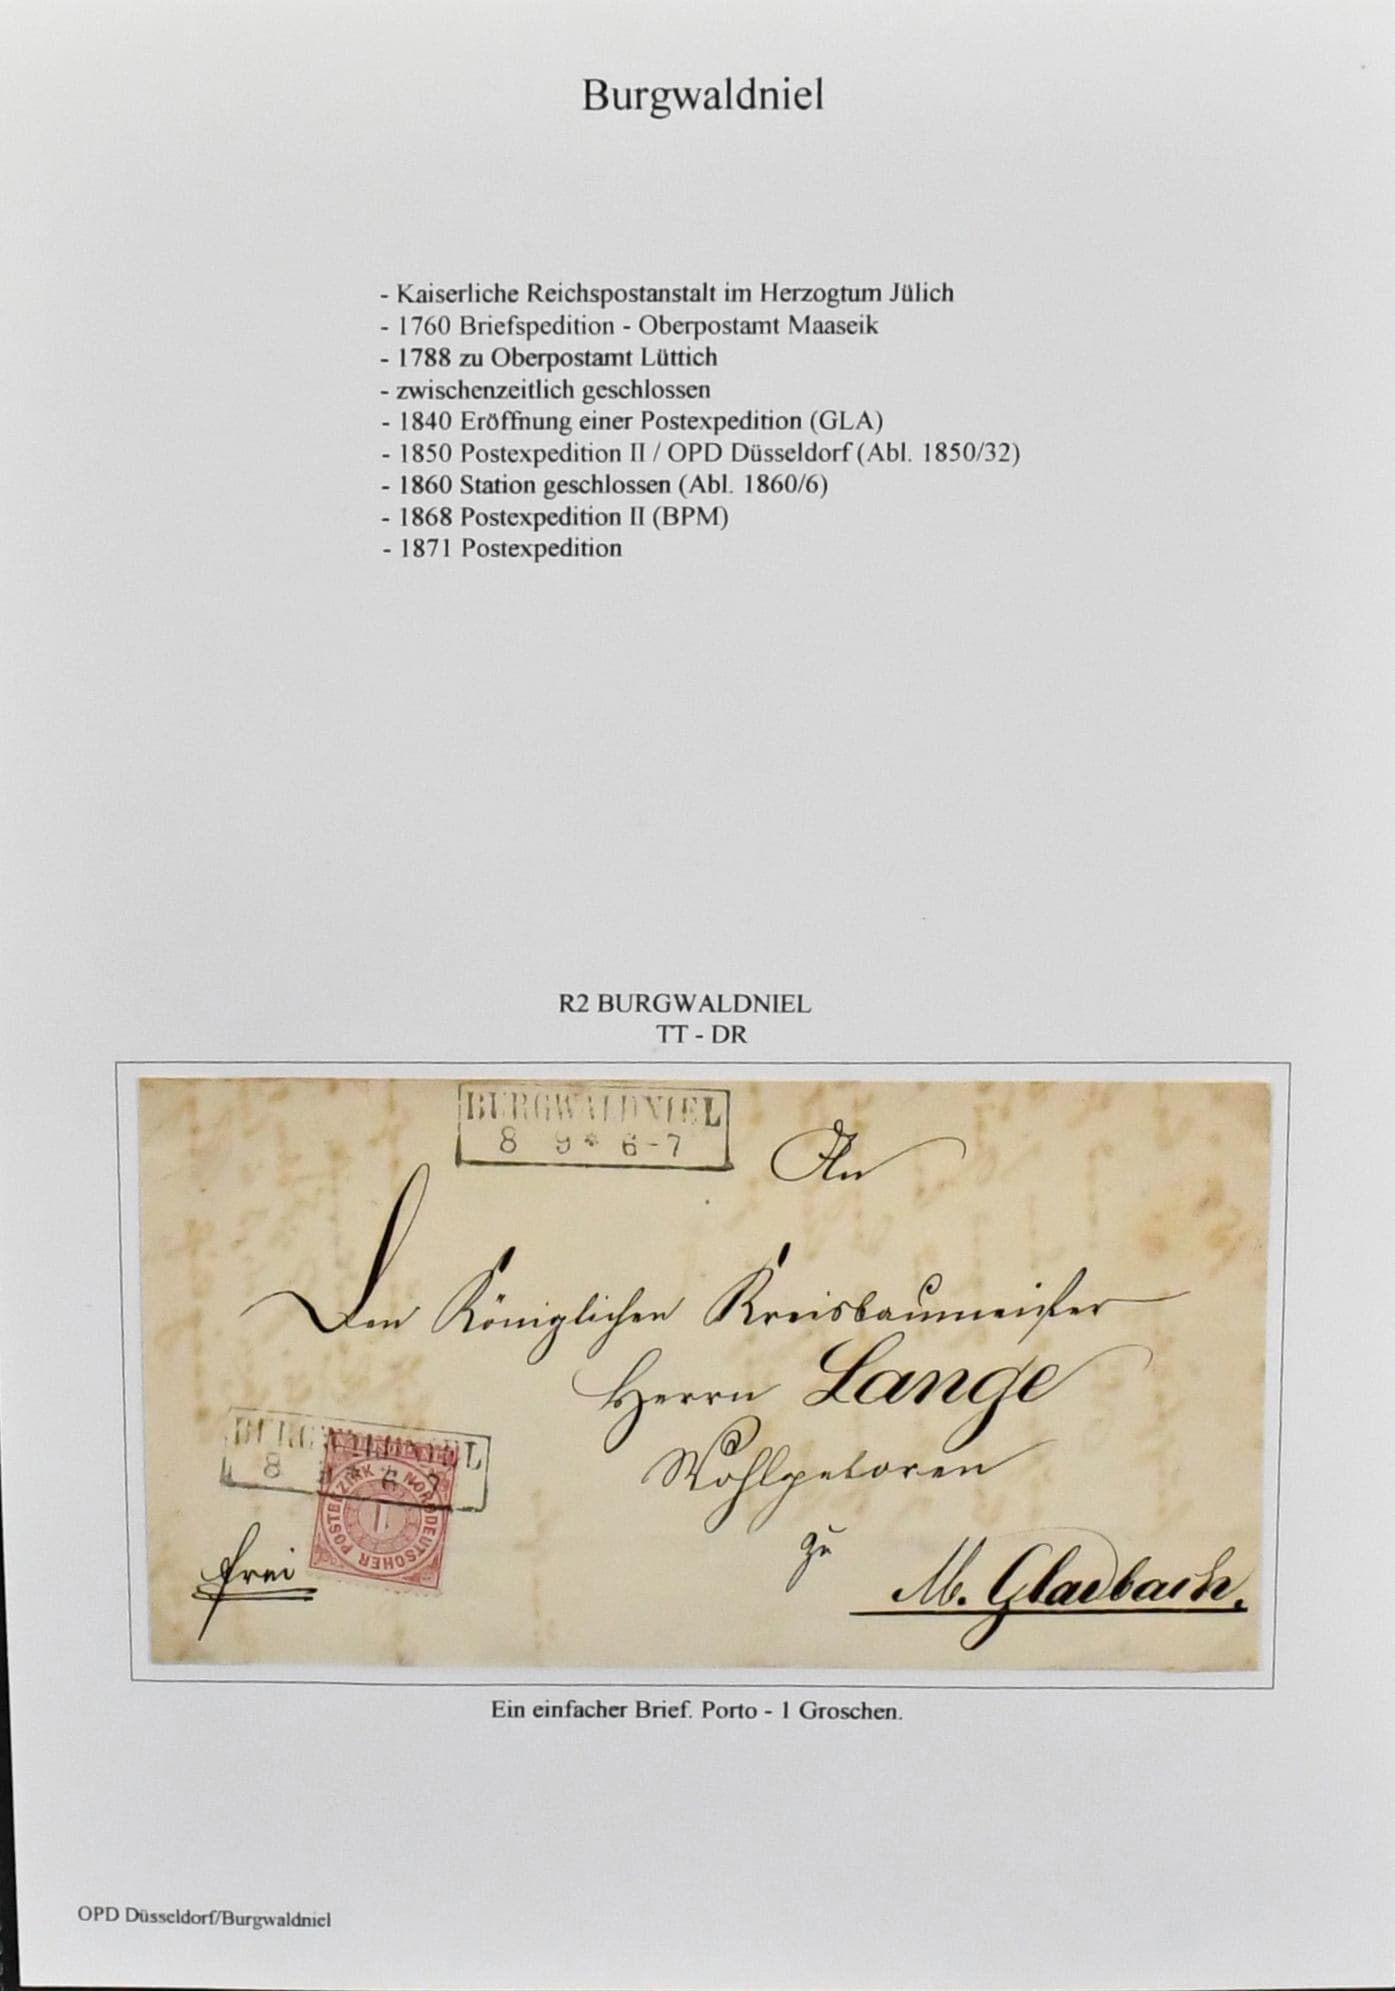 Burgwaldniel
- Kaiserliche Reichspostanstalt im Herzogtum Jülich
- 1760 Briefspedition - Oberpostamt Maaseik
- 1788 zu Oberpostamt Lüttich
- zwischenzeitlich geschlossen
- 1840 Eröffnung einer Postexpedition (GLA)
- 1850 Postexpedition II / OPD Düsseldorf (Abl. 1850/32)
- 1860 Station geschlossen (Abl. 1860/6)
- 1868 Postexpedition II (BPM)
- 1871 Postexpedition
R2 BURGWALDNIEL
TT - DR
BURGWALDNIEL
8 9 * 6-7
An
Den Königlichen Kreisbaumeister
Herrn Lange
Wohlgeboren
zu
M. Gladbach.
BURGWALDNIEL
8 9 * 6-7
NORDDEUTSCHER POSTBEZIRK
1
frei
Ein einfacher Brief. Porto - 1 Groschen.
OPD Düsseldorf/Burgwaldniel